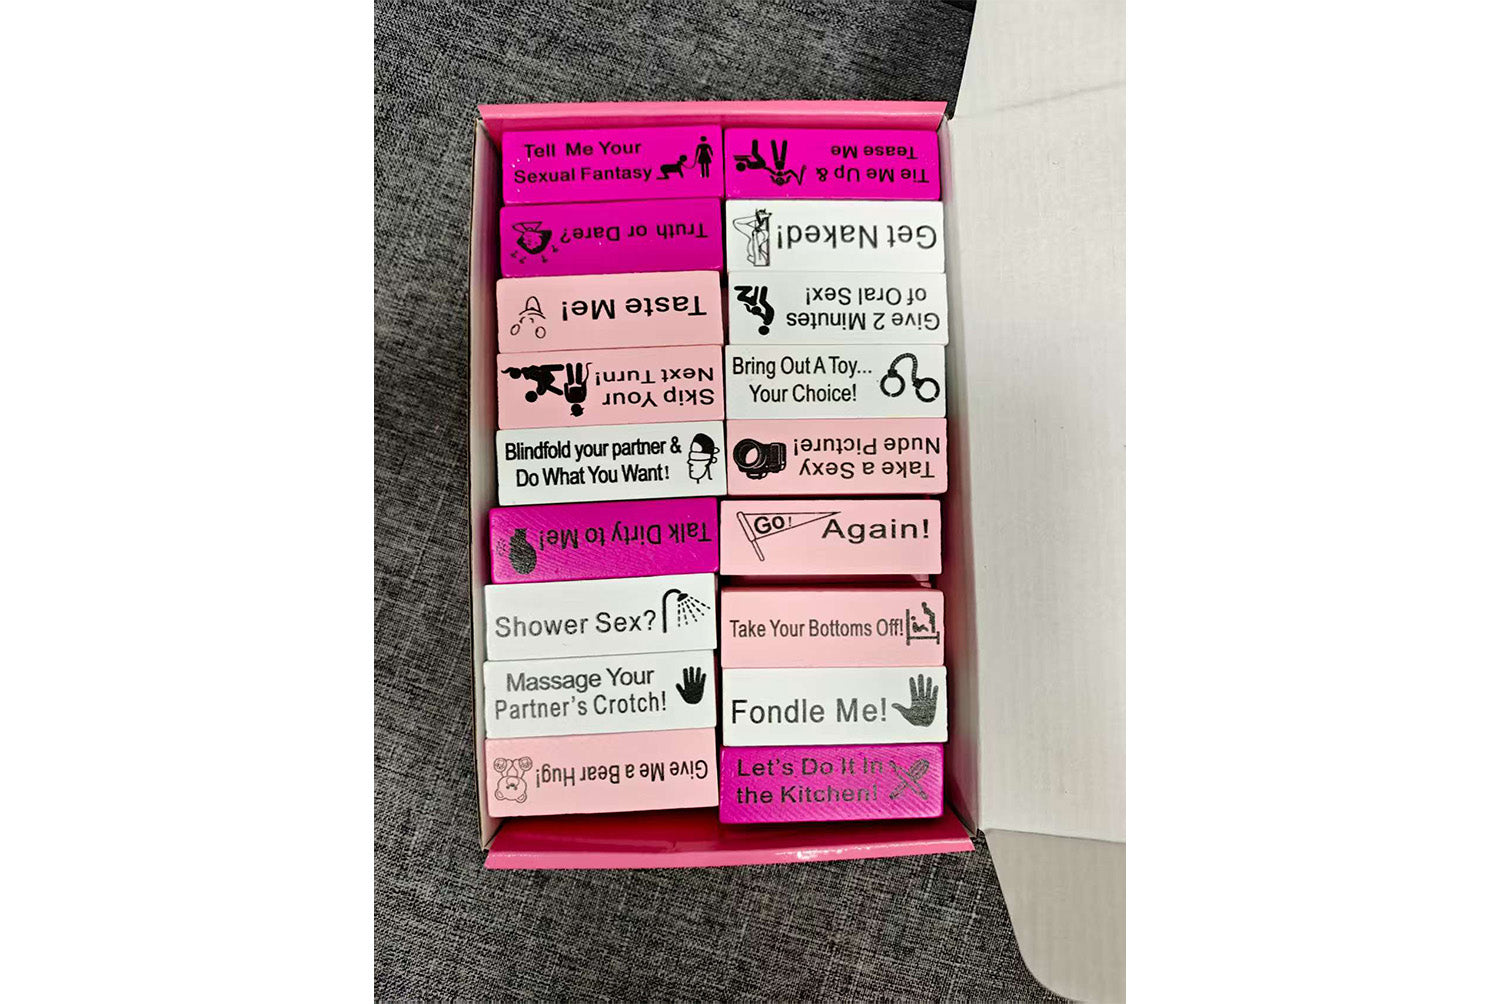 Tell Me Your
Sexual Fantasy
Truth or Dare?
Taste Me!
Skip Your
Next Turn!
Blindfold your partner &
Do What You Want!
Talk Dirty to Me!
Shower Sex?
Massage Your
Partner's Crotch!
Give Me a Bear Hug!
Tie Me Up &
Tease Me
Get Naked!
Give 2 Minutes
of Oral Sex!
Bring Out A Toy...
Your Choice!
Take a Sexy
Nude Picture!
GO!
Again!
Take Your Bottoms Off!
Fondle Me!
Let's Do It In
the Kitchen!